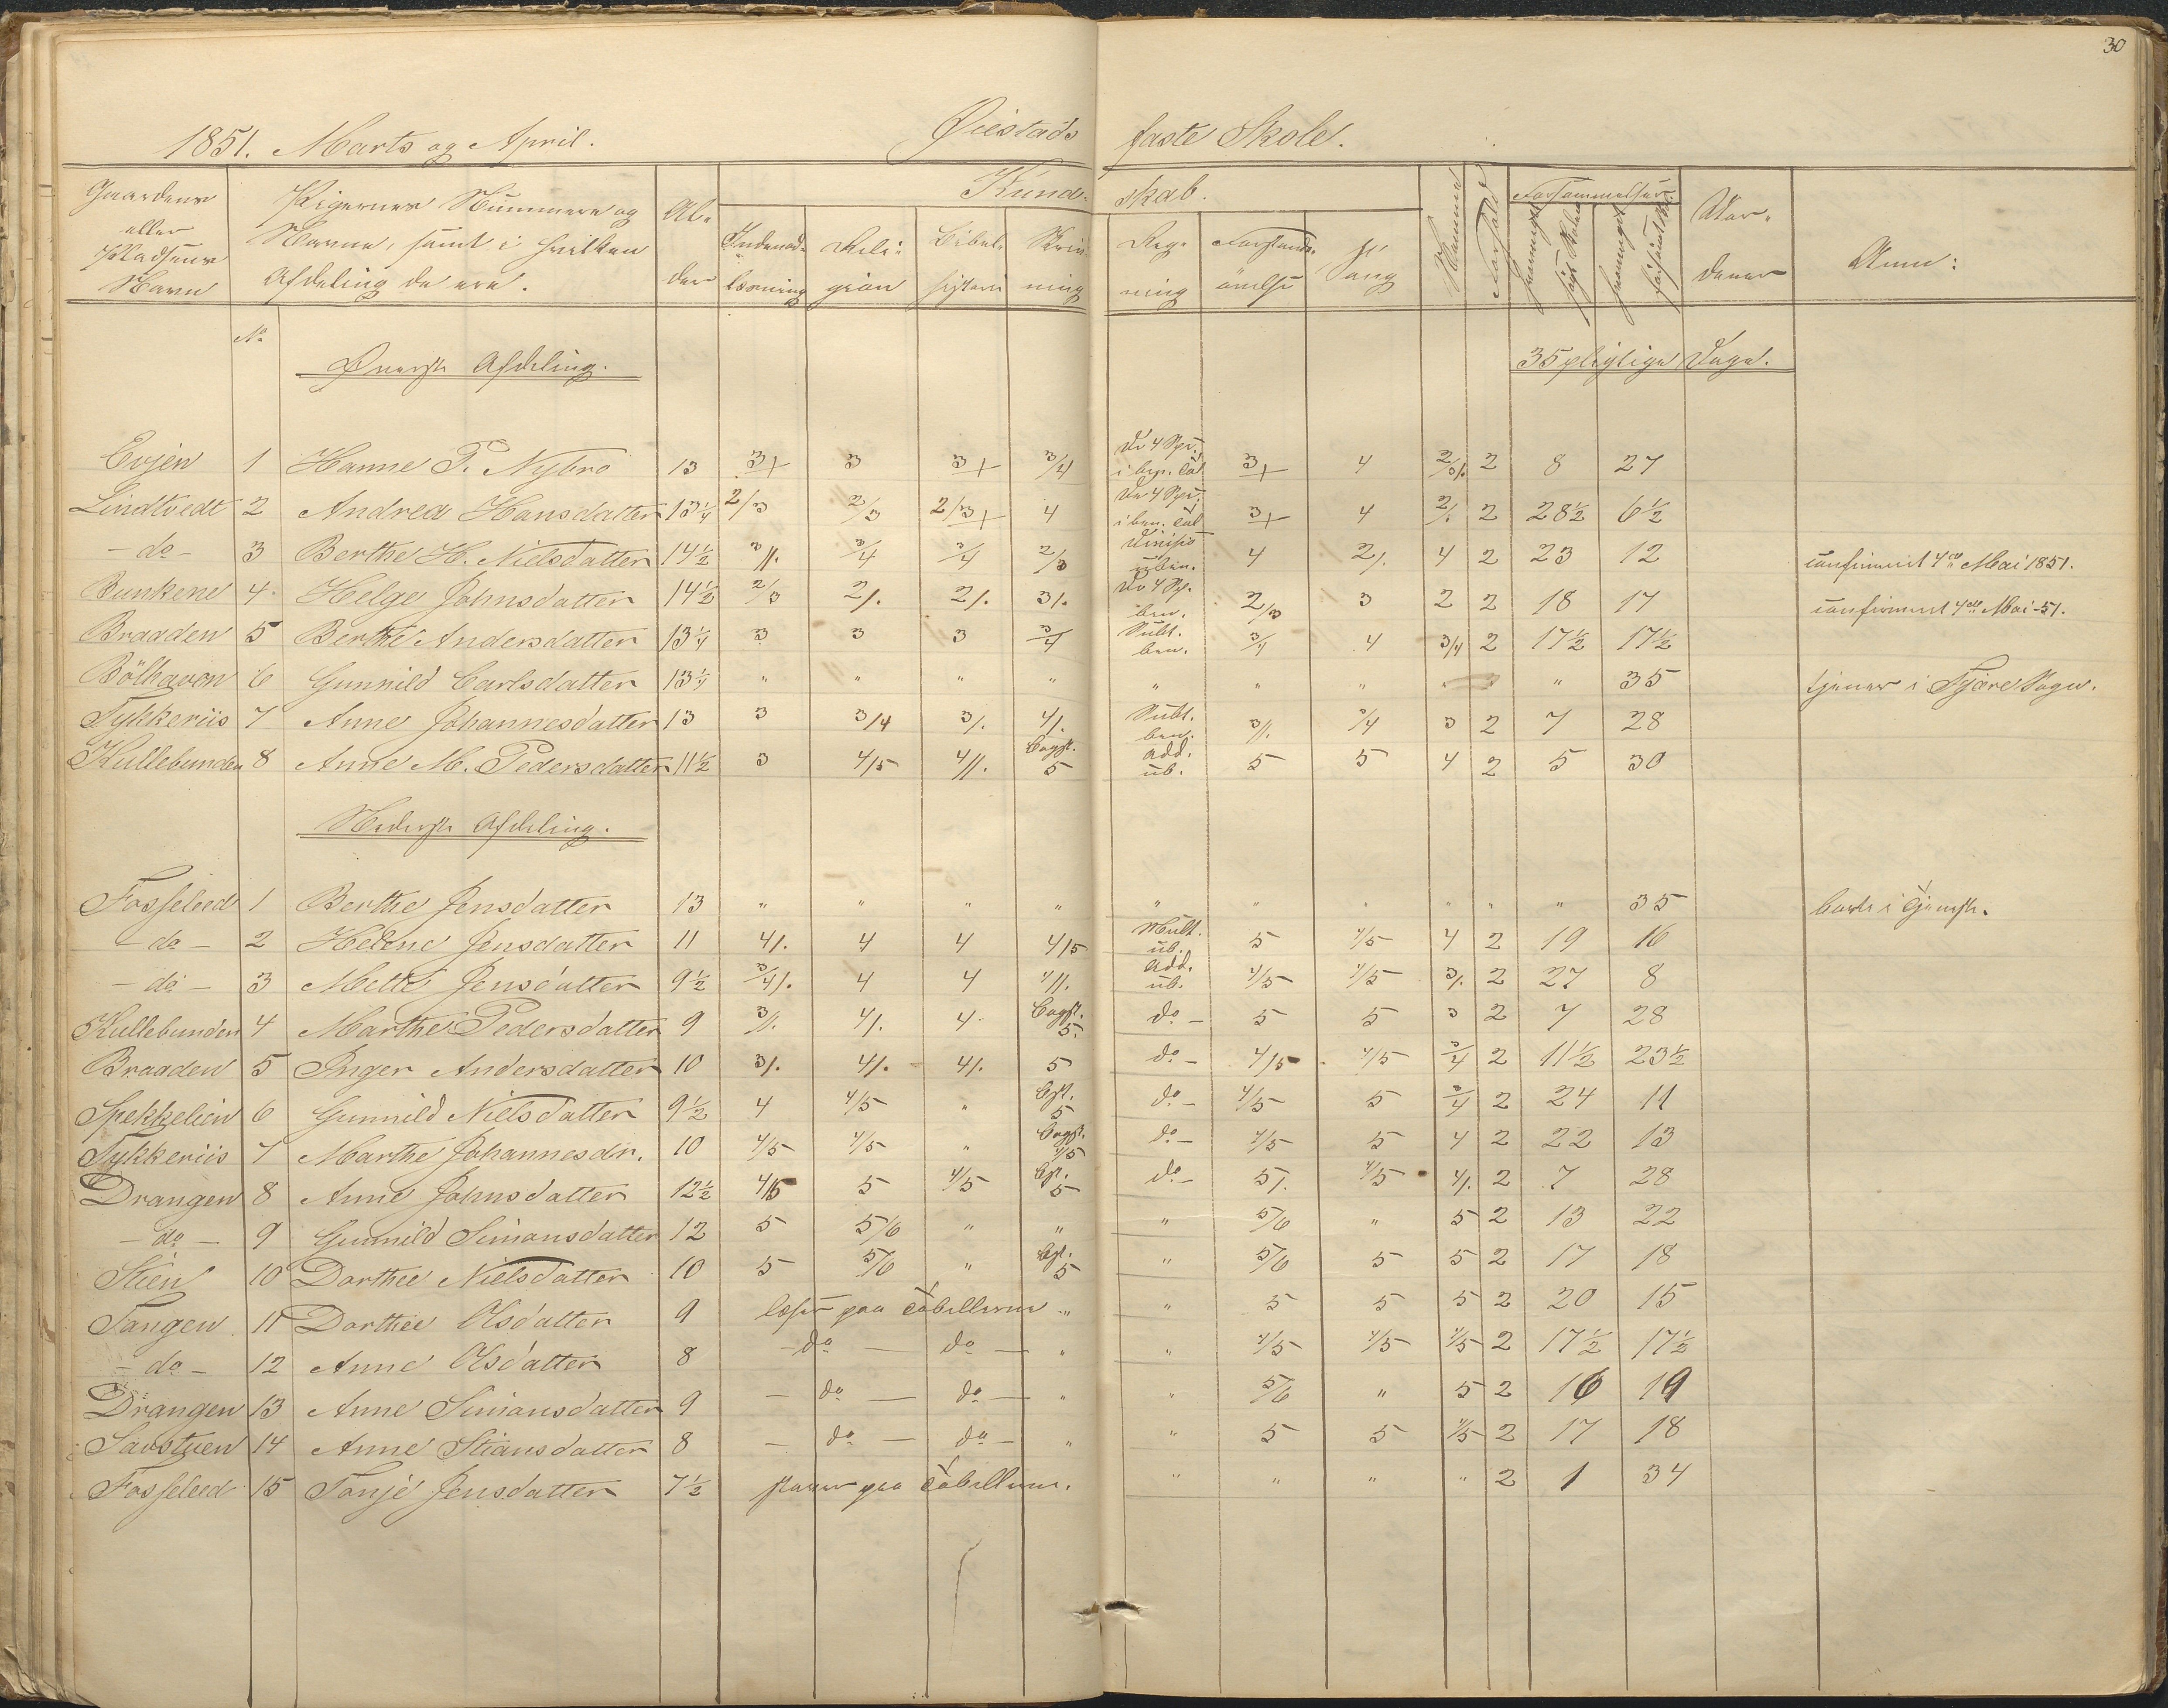 30
1851. Marts og April. Øiestads faste Skole.
Gaardens eller Pladsens Navn
Pigernes Nummere og Navne, samt i hvilken Afdeling de ere.
Al-der
Kund-skab.
Indenad-læsning
Reli-gion
Bibel-historie
Skriv-ning
Reg-ning
Forstands-øvelse
Sang
Nemme
Forhold
Forsømmelser
Anm:
No
Øverste Afdeling.
35 pligtige Dage.
Evjen 1 Hanne P. Nybro 13 3+ 3 3+ 3/4 De 4 Spe. i ben. Tal 3+ 4 2/3/. 2 8 27
Lindtvedt 2 Andrea Hansdatter 13¼ 2/3 2/3 2/3+ 4 De 4 Spe. i ben. Tal 3+ 4 2/. 2 28½ 6½
- do - 3 Berthe H. Nielsdatter 14½ 3//. 3/4 3/4 2/3 Divisio ubin. 4 2/. 4 2 23 12 confirmeret 4de Mai 1851.
Bunkene 4 Helge Johnsdatter 14½ 2/3 2/. 2/. 3/. De 4 Sp. ben. 2/3 3 2 2 18 17 confirmeret 4de Mai -51.
Braaden 5 Berthe Andersdatter 13¼ 3 3 3 3/4 Subt. ben. 3/4 4 3/4 2 17½ 17½
Bölhaven 6 Gunnild Carlsdatter 13¼ " " " " " " " " " 35 tjener i Fjære Sogn.
Tykkeriis 7 Anne Johannesdatter 13 3 3/4 3/. 4/. Subt. ben. 3//. 3/4 3 2 7 28
Kullebunden 8 Anne M. Pedersdatter 11½ 3 4/5 4//. Bogst. 5 add. ub. 5 5 4 2 5 30
Nederste Afdeling.
Fosseleed 1 Berthe Jensdatter 13 " " " " " " " " " " 35 borte i Tjeneste.
- do - 2 Helene Jensdatter 11 4/. 4 4 4/5 Mult. ub. 5 4/5 4 2 19 16
- do - 3 Mette Jensdatter 9½ 3/4/. 4 4 4//. add. ub. 4/5 4/5 3/. 2 27 8
Kullebunden 4 Marthe Pedersdatter 9 3//. 4/. 4 Bogst. 5. do - 5 5 3 2 7 28
Braaden 5 Inger Andersdatter 10 3/. 4/. 4/. 5 do - 4/5 4/5 3/4 2 11½ 23½
Spekkelien 6 Gunnild Nielsdatter 9½ 4 4/5 " Bgst. 5 do - 4/5 5 3/4 2 24 11
Tykkeriis 7 Marthe Johannesdr. 10 4/5 4/5 " Bogst. 4/5 do - 4/5 5 4 2 22 13
Drangen 8 Anne Johnsdatter 12½ 4/5 5 4/5 Bgst. 5 do - 5/. 4/5 4/. 2 7 28
- do - 9 Gunnild Simonsdatter 12 5 5/6 " " " 5/6 " 5 2 13 22
Stien 10 Dorthee Nielsdatter 10 5 5/6 " Bgst. 5 " 5/6 5 5 2 17 18
Tangen 11 Dorthee Olsdatter 9 læser paa Tabellerne " " 5 5 5 2 20 15
- do - 12 Anne Olsdatter 8 - do - do - " " 4/5 4/5 4/5 2 17½ 17½
Drangen 13 Anne Simonsdatter 9 - do - do - " " 5/6 " 5 2 16 19
Saustuen 14 Anne Stiansdatter 8 - do - do - " " 5 5 4/5 2 17 18
Fosseleed 15 Tonje Jensdatter 7½ staver paa Tabellerne. " " " " 2 1 34